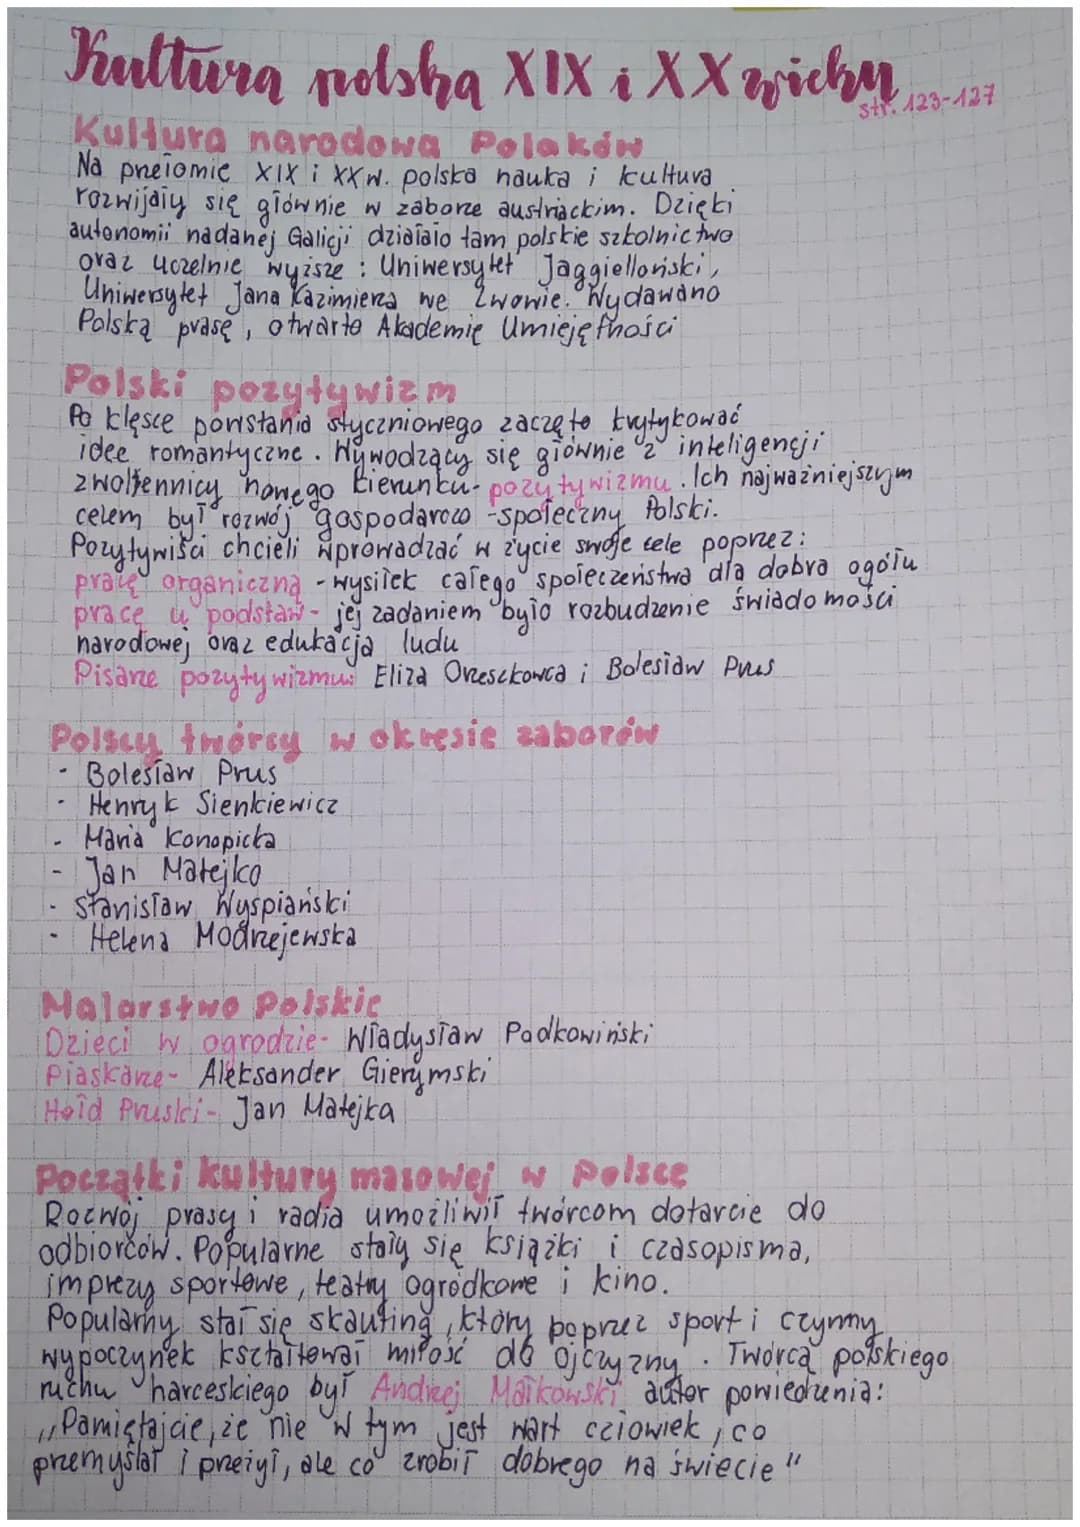 Kultura polska XIX i XX wieku
str. 123-127
Kultura narodowa Polaków
Na przełomie XIX i XXw. polska nauka i kultura
rozwijały się głównie w zaborze austriackim. Dzięki
autonomii nadanej Galicji działało tam polskie szkolnictwo
oraz uczelnie wyższe: Uniwersytet Jaggielloński,
Uniwersytet Jana Kazimierza we Lwowie. Wydawano
Polską prasę, otwarto Akademię Umiejętności
Polski pozytywizm
Po klęsce powstania styczniowego zaczęto krytykować
idee romantyczne. Wywodzący się głównie z inteligencji
zwolennicy nowego kierunku- pozytywizmu. Ich najważniejszym
celem był rozwój gospodarczo-społeczny Polski.
Pozytywiści chcieli wprowadzać w życie swoje cele poprzez:
pracę organiczną - wysiłek całego społeczeństwa dla dobra ogółu
pracę u podstaw- jej zadaniem było rozbudzenie świadomości
narodowej oraz edukacja ludu
Pisarze pozytywizmu: Eliza Orzeszkowa i Bolesław Prus
Polscy twórcy w okresie zaborów
- Bolesław Prus
- Henryk Sienkiewicz
- Maria Konopicka
- Jan Matejko
- Stanisław Wyspiański
- Helena Modrzejewska
Malarstwo Polskie
Dzieci w ogrodzie- Władysław Podkowiński
Piaskarze- Aleksander Gierymski
Hołd Pruski- Jan Matejka
Początki kultury masowej w Polsce
Rozwój prasy i radia umożliwił twórcom dotarcie do
odbiorców. Popularne stały się książki i czasopisma,
imprezy sportowe, teatry ogródkowe i kino.
Popularny stał się skauting, który poprzez sport i czynny
wypoczynek kształtował miłość do ojczyzny. Twórcą polskiego
ruchu harceskiego był Andrzej Małkowski autor powiedzenia:
„Pamiętajcie, że nie w tym jest wart człowiek, co
przemyślał i przeżył, ale co zrobił dobrego na świecie"